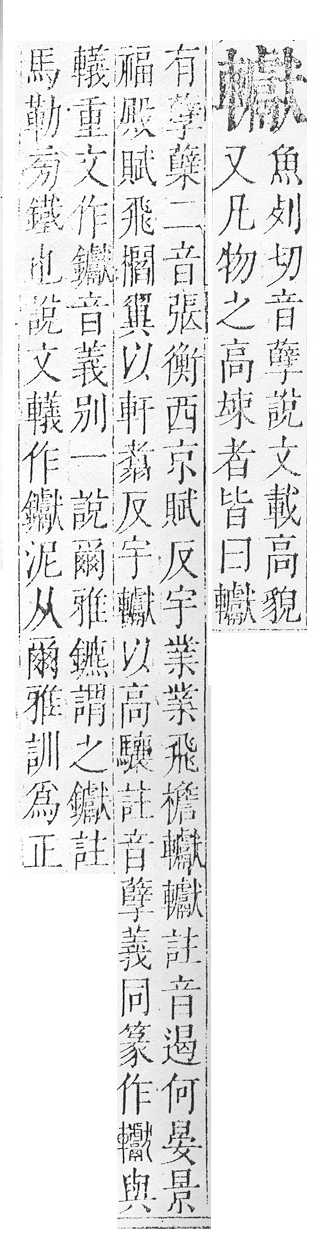 䡾
魚列切音孽說文載高貌
又凡物之高竦者皆曰䡾
有孽櫱二音張衡西京賦反宇業業飛檐䡾䡾註音遏何晏景
福殿賦飛櫩翼以軒翥反宇䡾以高驤註音孽義同篆作䡾與
轙重文作钀音義別一說爾雅鑣謂之钀註
馬勒旁鐵也說文轙作钀泥从爾雅訓爲正